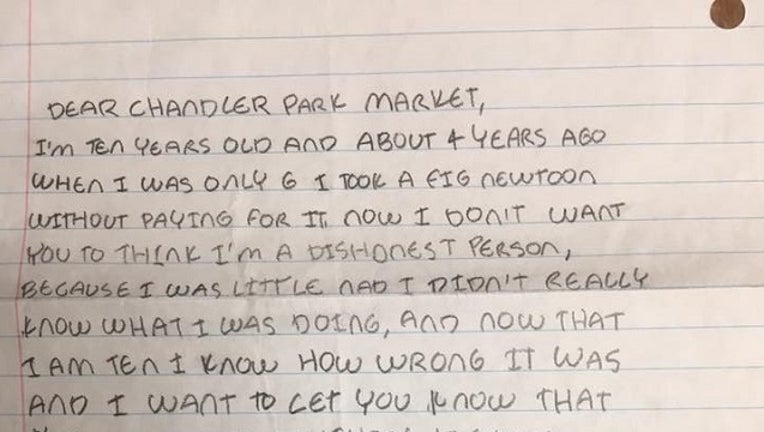 DEAR CHANDLER PARK MARKET,
I'm TEN YEARS OLD AND ABOUT 4 YEARS AGO
WHEN I WAS ONLY 6 I TOOK A FIG NEWTOON
WITHOUT PAYING FOR IT, NOW I DON'T WANT
YOU TO THINK I'M A DISHONEST PERSON,
BECAUSE I WAS LITTLE NAD I DIDN'T REALLY
KNOW WHAT I WAS DOING, AND NOW THAT
I AM TEN I KNOW HOW WRONG IT WAS
AND I WANT TO LET YOU KNOW THAT